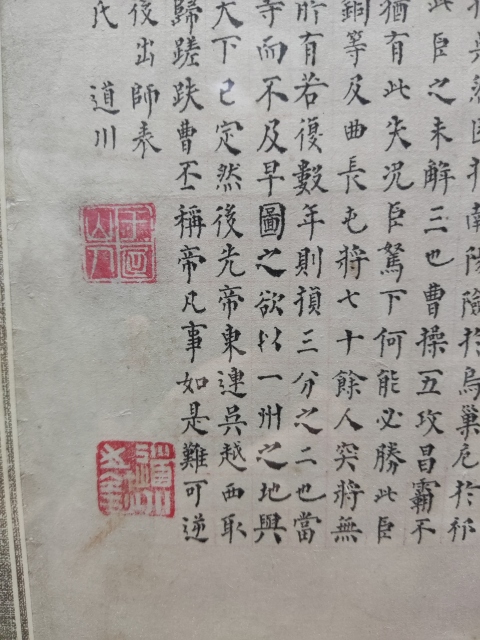 於烏巢危於祁
此臣之未解三也曹操五攻昌霸不
猶有此失況臣駑下何能必勝此臣
銅等及曲長屯將七十餘人突將無
所有若復數年則損三分之二也當
等而不及早圖之欲以一州之地與
大下已定然後先帝東連吳越西取
歸蹉跌曹丕稱帝凡事如是難可逆
後出師表
氏 道川